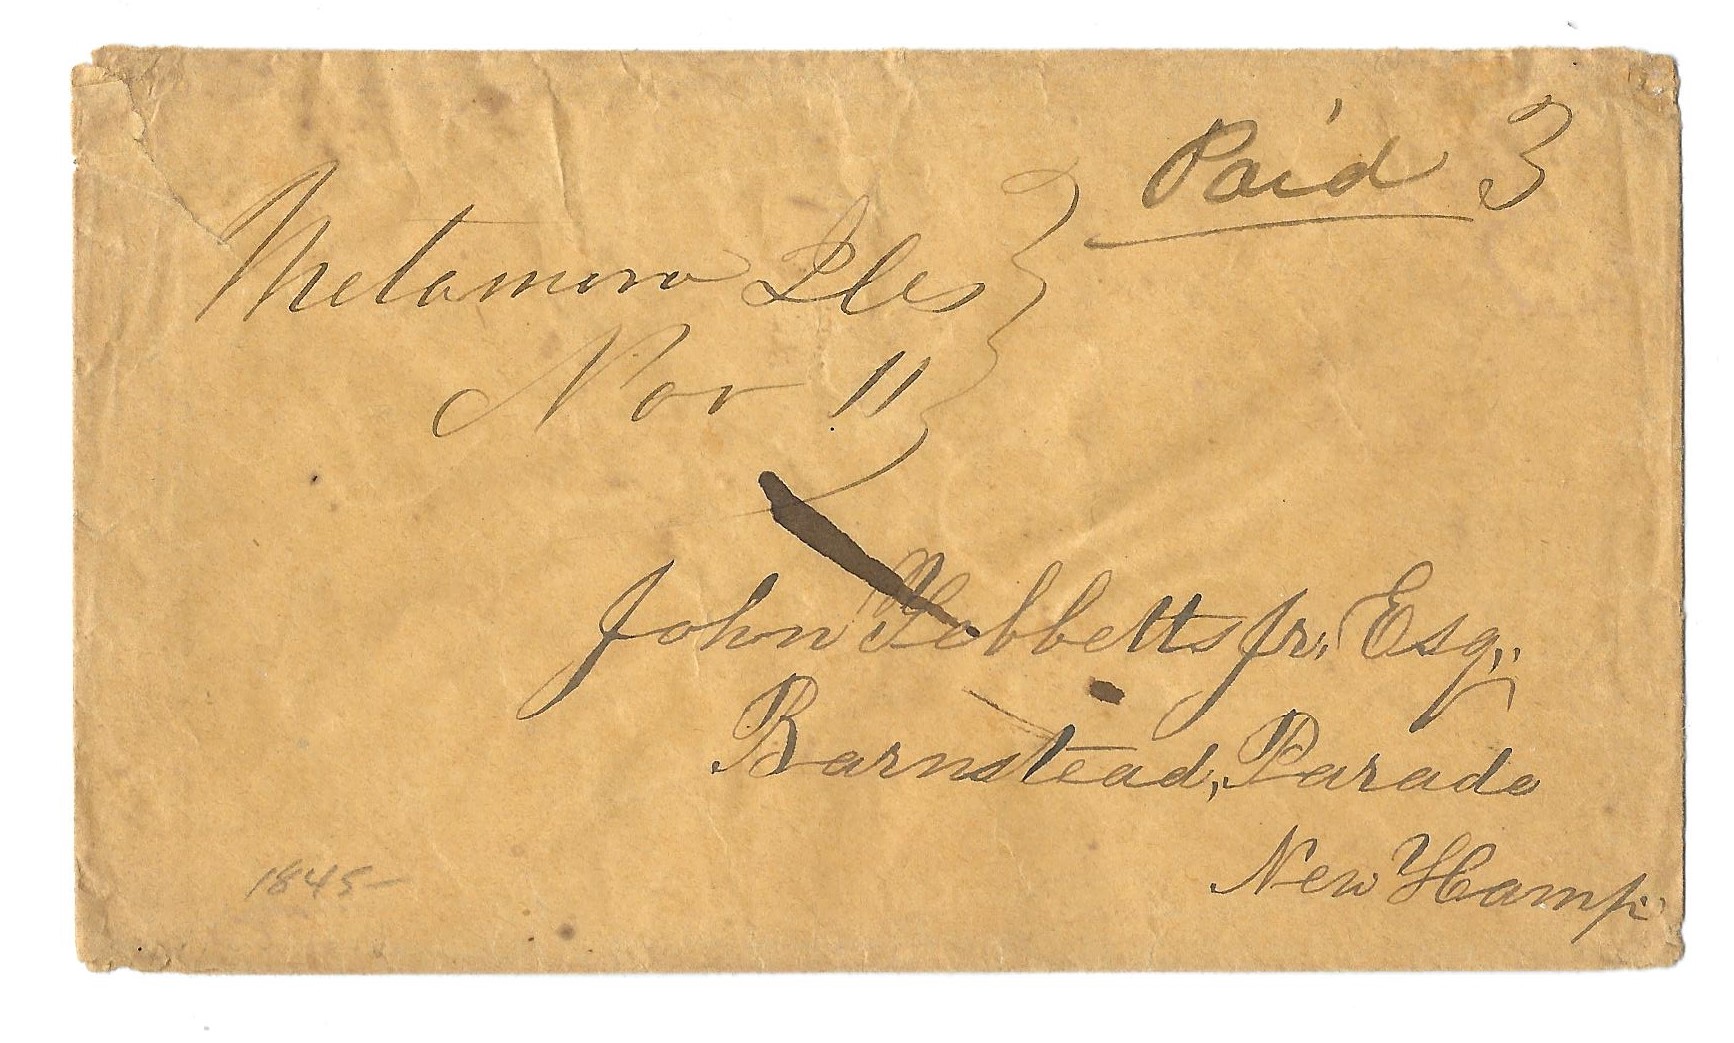 Paid 3
Metamora Ills
Nov 11
John Tebbetts jr. Esq.
Barnstead, Parade
New Hamp.
1845-